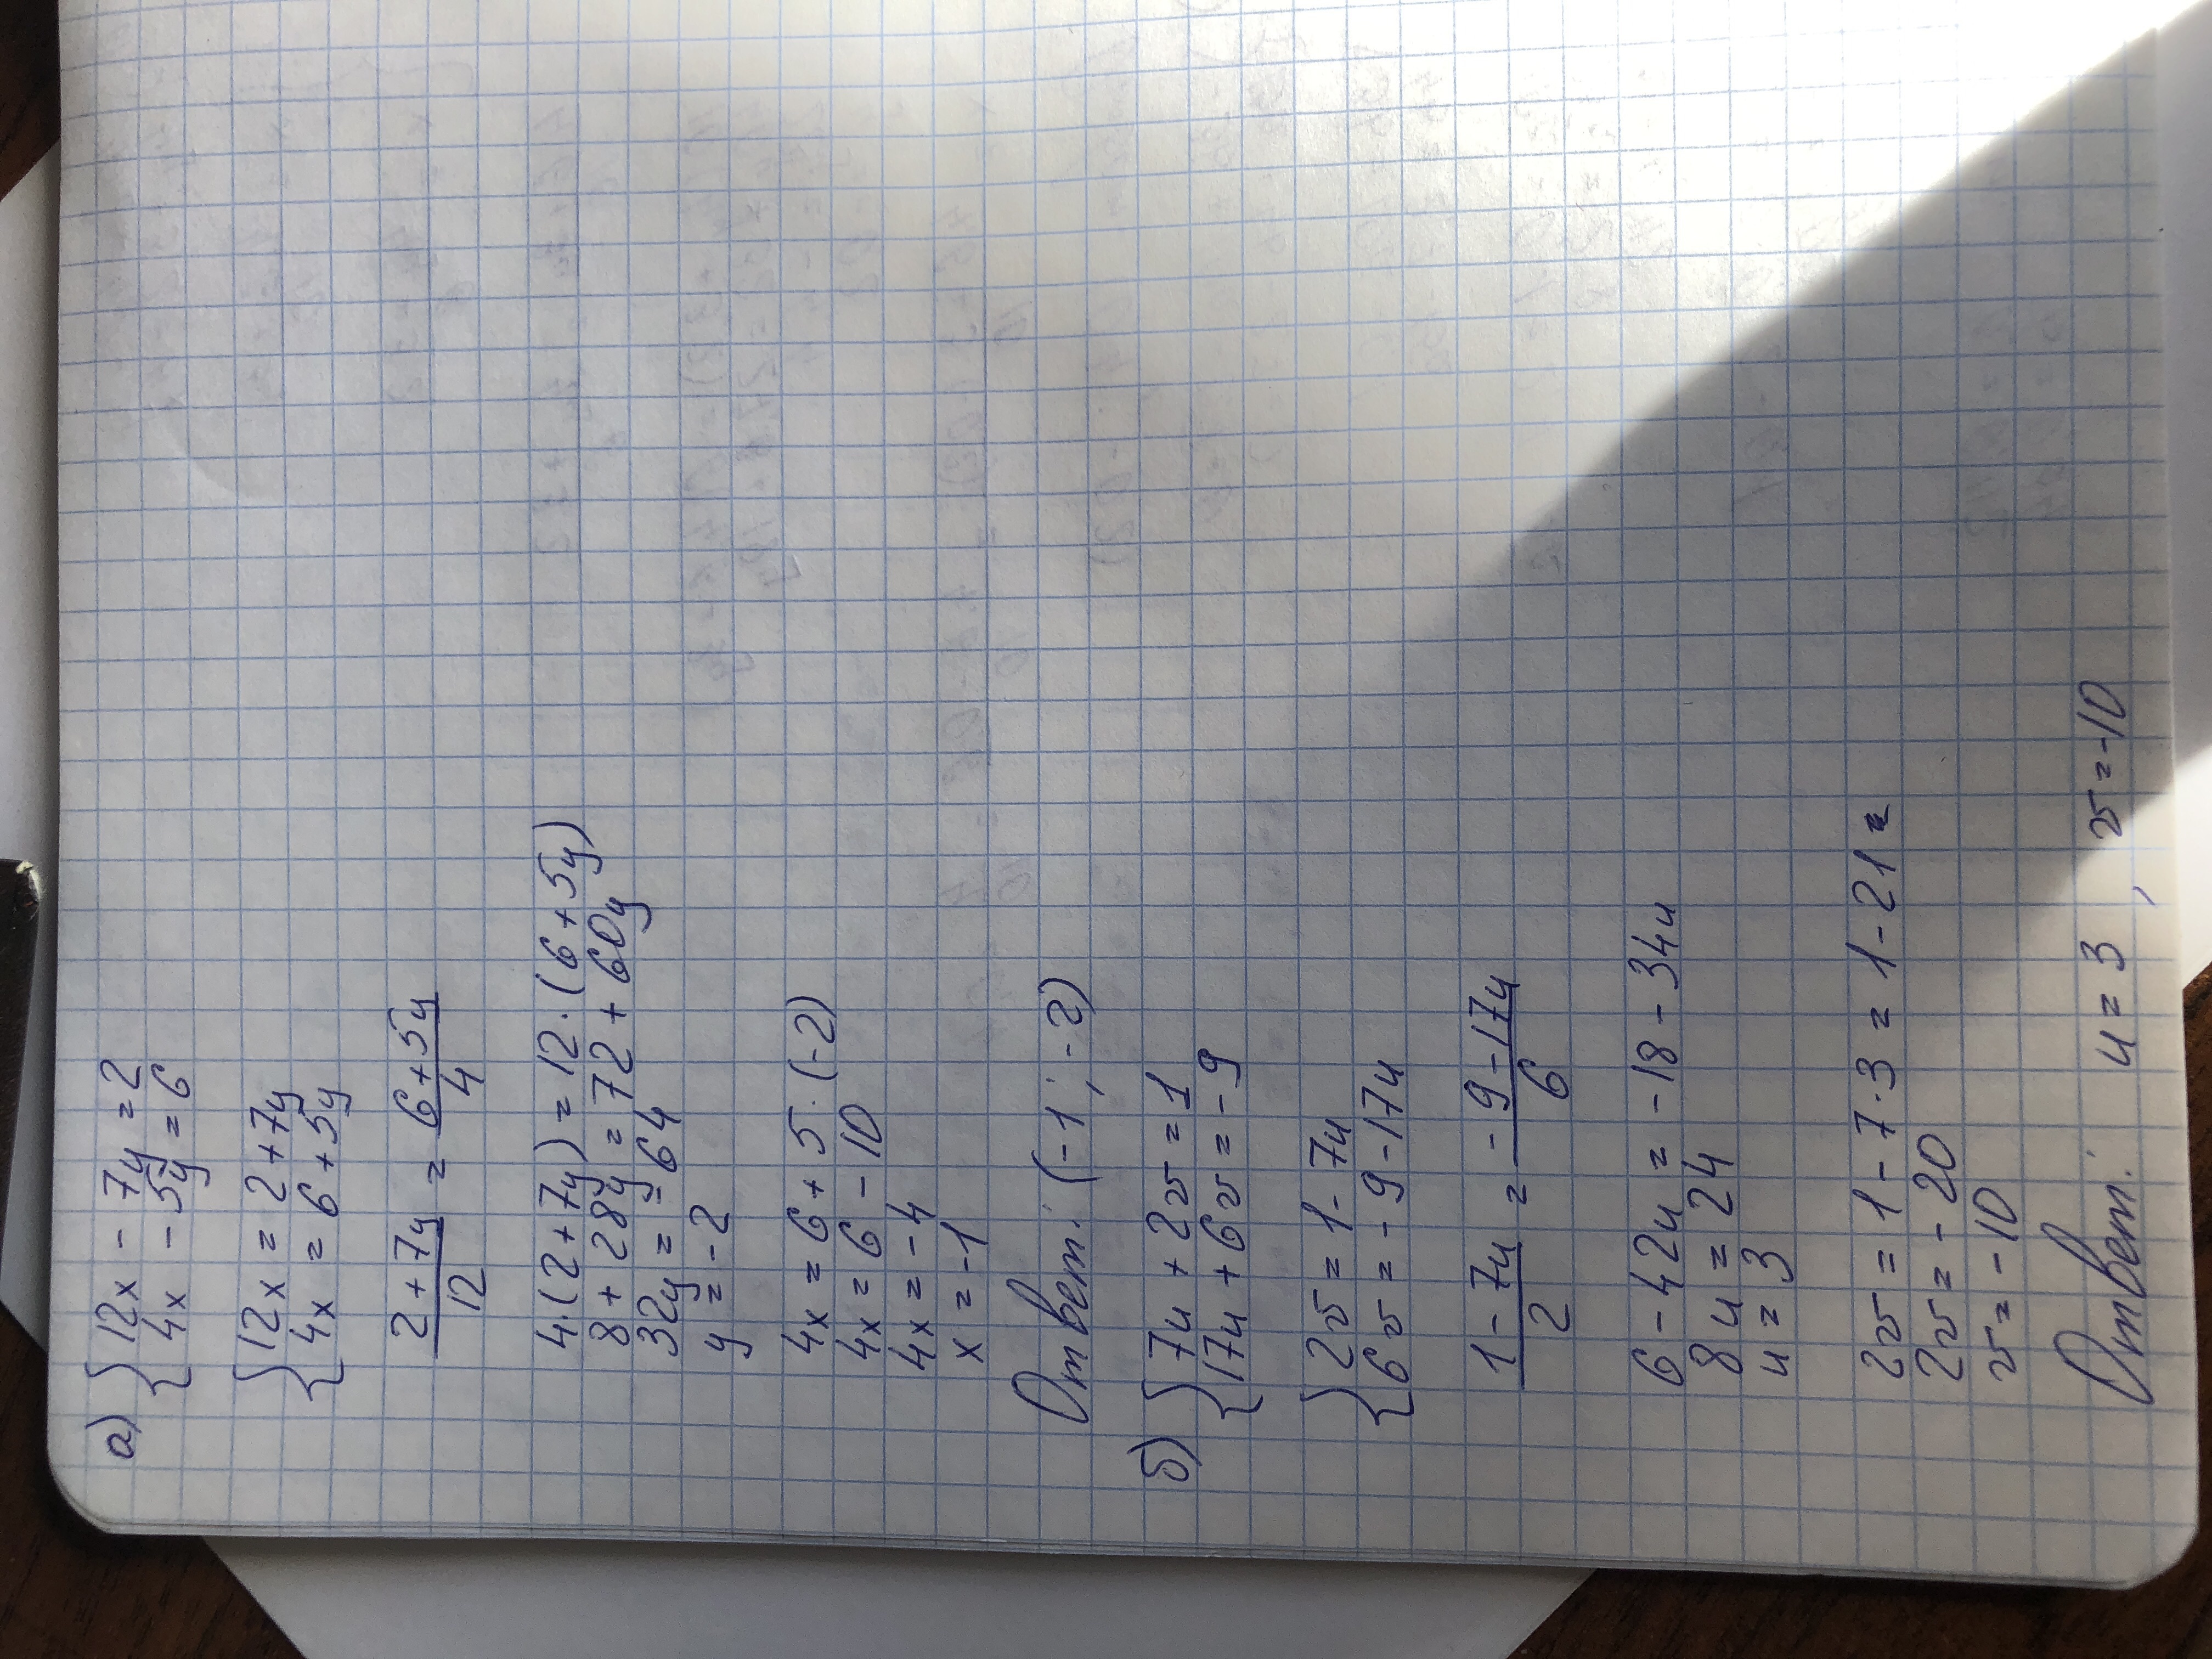 а) { 12x - 7y = 2
4x - 5y = 6
{ 12x = 2 + 7y
4x = 6 + 5y
2 + 7y / 12 = 6 + 5y / 4
4·(2 + 7y) = 12·(6 + 5y)
8 + 28y = 72 + 60y
32y = - 64
y = - 2
4x = 6 + 5·(-2)
4x = 6 - 10
4x = - 4
x = -1
Ответ: (-1; -2)
б) { 7u + 2v = 1
17u + 6v = - 9
{ 2v = 1 - 7u
6v = - 9 - 17u
1 - 7u / 2 = - 9 - 17u / 6
6 - 42u = - 18 - 34u
8u = 24
u = 3
2v = 1 - 7·3 = 1 - 21 =
2v = - 20
v = - 10
Ответ: u = 3, v = -10